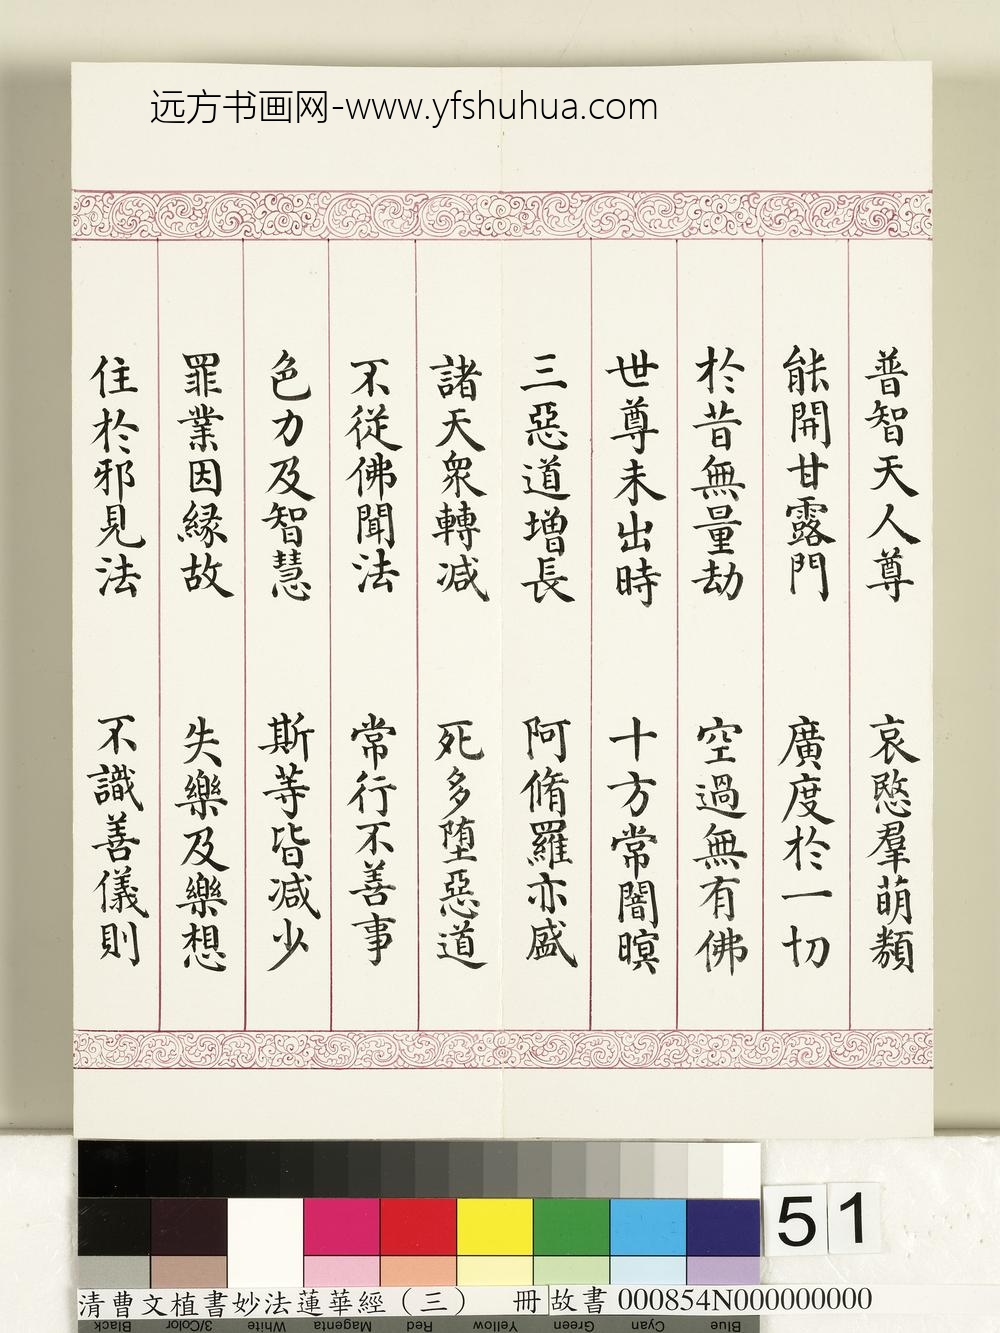 远方书画网-www.yfshuhua.com
普智天人尊 哀愍羣萌類
能開甘露門 廣度於一切
於昔無量劫 空過無有佛
世尊未出時 十方常闇暝
三惡道增長 阿脩羅亦盛
諸天衆轉減 死多墮惡道
不從佛聞法 常行不善事
色力及智慧 斯等皆減少
罪業因緣故 失樂及樂想
住於邪見法 不識善儀則
51
清曹文植書妙法蓮華經(三) 冊 故書 000854N000000000
Black 3/Color White Magenta Red Yellow Green Cyan Blue